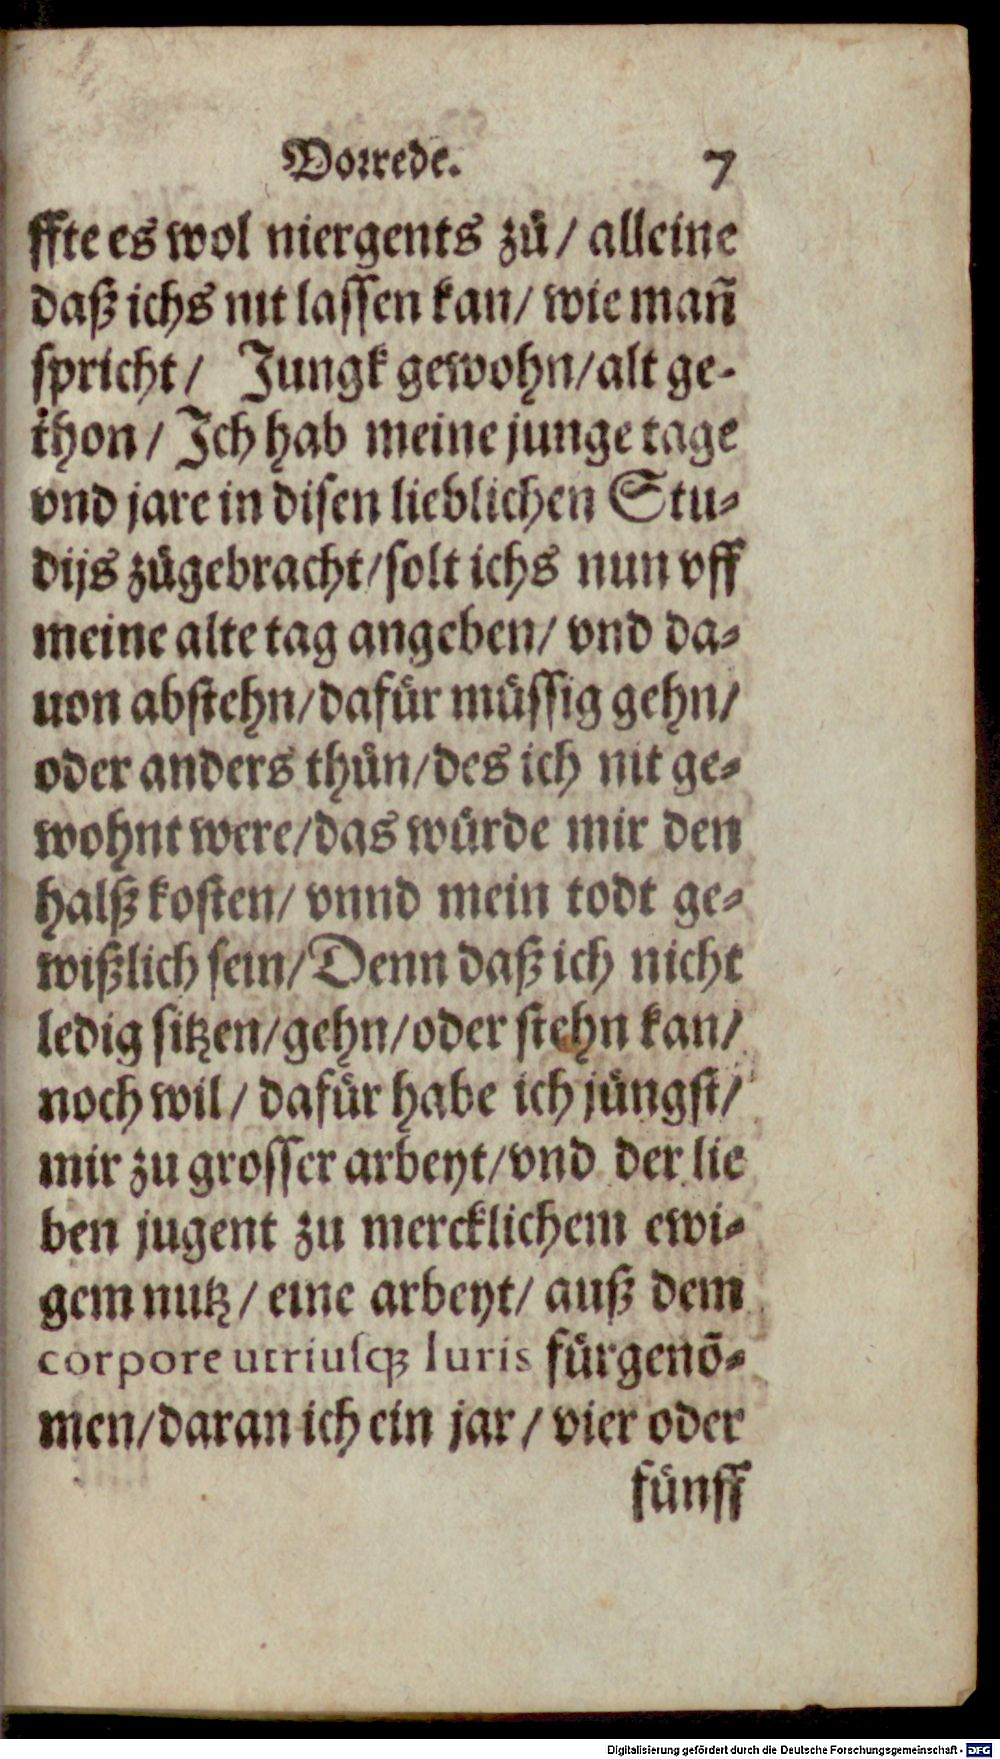 Vorrede. 7
ffte es wol niergents zů / alleine
daß ichs nit lassen kan / wie mañ
spricht / Jungk gewohn / alt ge-
thon / Ich hab meine junge tage
vnd jare in disen lieblichen Stu-
dijs zůgebracht / solt ichs nun vff
meine alte tag angeben / vnd da-
uon abstehn / dafür müssig gehn /
oder anders thůn / des ich nit ge-
wohnt were / das würde mir den
halß kosten / vnnd mein todt ge-
wißlich sein / Denn daß ich nicht
ledig sitzen / gehn / oder stehn kan /
noch wil / dafür habe ich jüngst /
mir zu grosser arbeyt / vnd der lie
ben jugent zu mercklichem ewi-
gem nutz / eine arbeyt / auß dem
corpore utriusq; Iuris fürgenō-
men / daran ich ein jar / vier oder
fünff
Digitalisierung gefördert durch die Deutsche Forschungsgemeinschaft - DFG